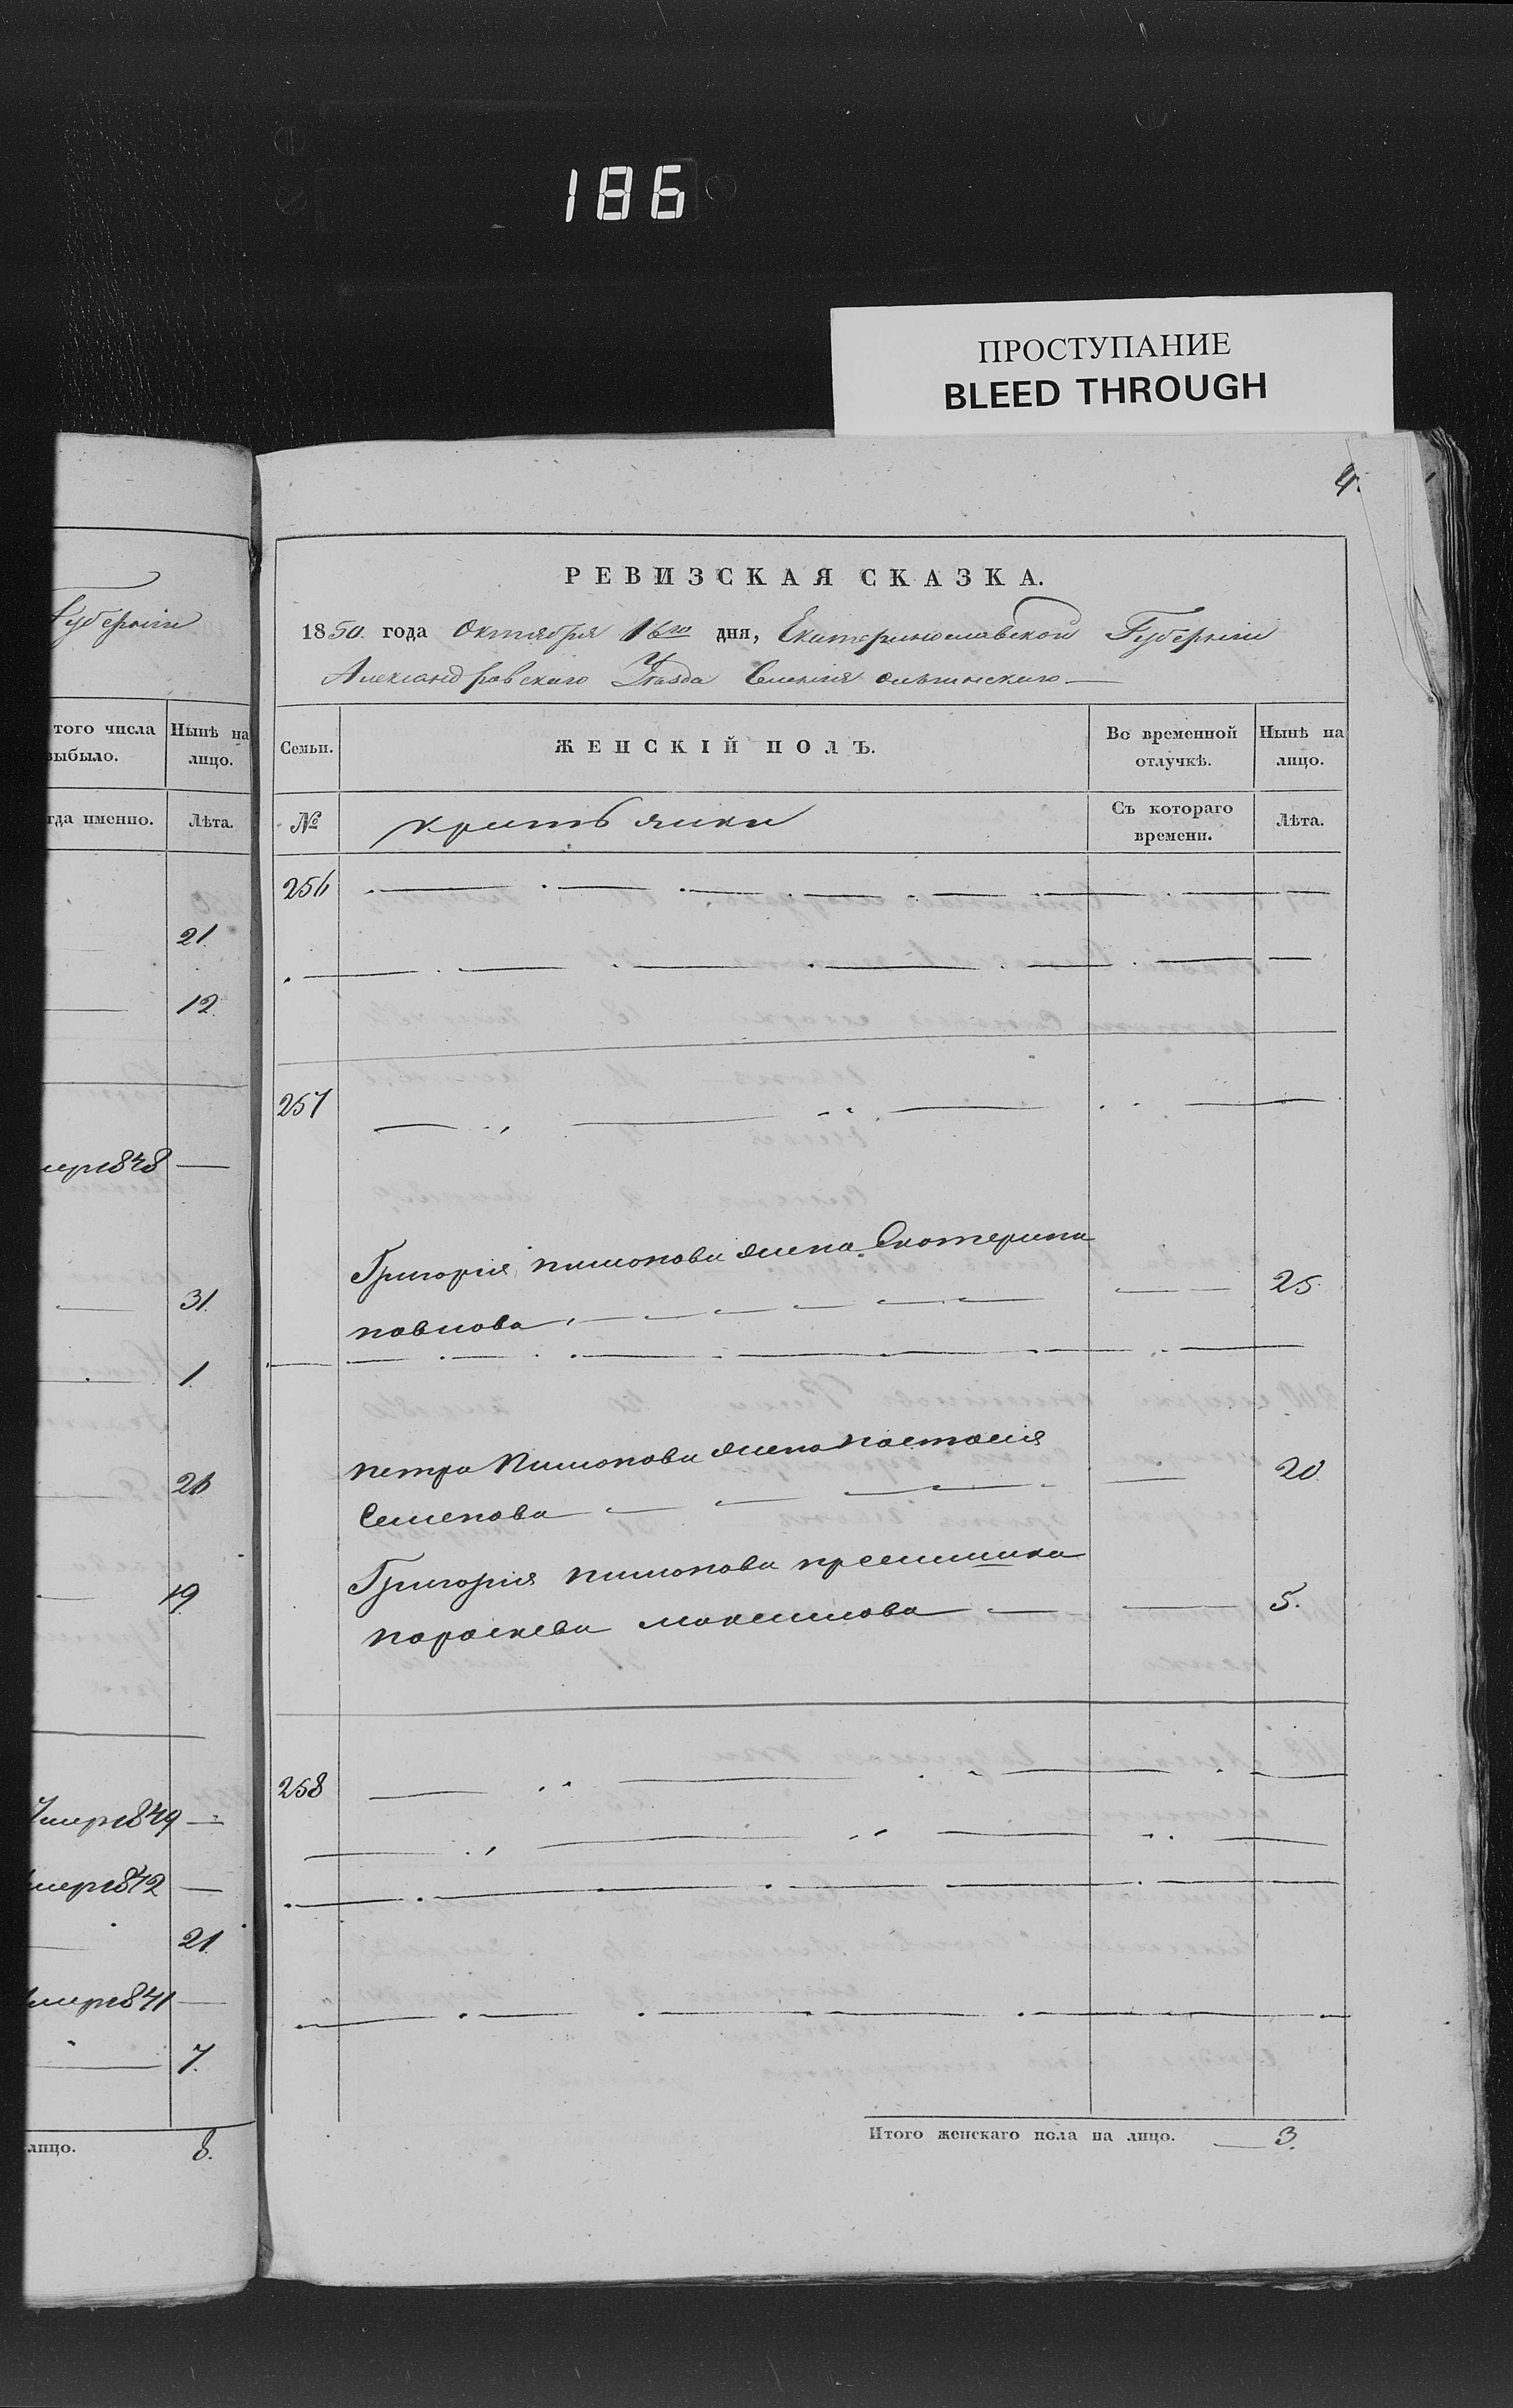 186
ПРОСТУПАНИЕ
BLEED THROUGH
4.
Губерніи
того числа выбыло.
Нынѣ на лицо.
гда именно.
Лѣта.
21.
12.
умер 1848
31.
1.
26
19.
Умер 1849
умер 1842
21.
умер 1841
7.
лицо.
8.
РЕВИЗСКАЯ СКАЗКА.
1850. года Октября 16го дня, Екатеринославской Губерніи
Александровскаго Уѣзда Селенія
Семьи.
ЖЕНСКІЙ ПОЛЪ.
Во временной отлучкѣ.
Нынѣ на лицо.
№
Съ котораго времени.
Лѣта.
256
257
Григорія жена Екотерина
повлова 25.
петра жена Ностосия
Семенова 20.
Григорія
Пороскева Моксимова 5.
258
Итого женскаго пола на лицо. 3.